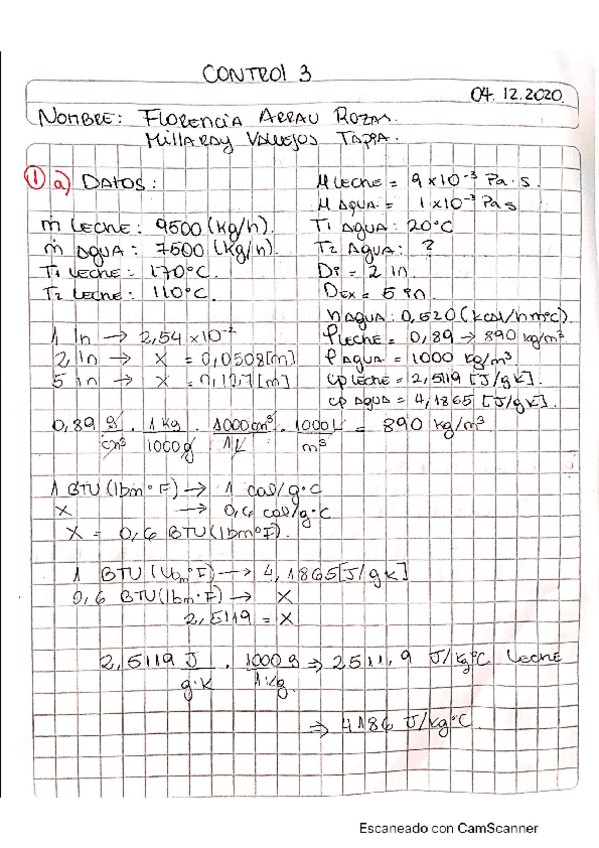 CONTROL 3
04.12.2020.
NOMBRE: FLORENCIA ARRAU ROZAS.
MILLARAY VALLEJOS TAPIA.
① a) DATOS:
ṁ LECHE: 9500 (kg/h).
ṁ AGUA: 7500 (kg/h).
T1 LECHE: 170°C.
T2 LECHE: 110°C.
μ LECHE = 9 x 10⁻³ Pa·s.
μ AGUA = 1x10⁻³ Pa s
T1 AGUA: 20°C
T2 AGUA: ?
Di = 2 in
Dex = 5 in.
h AGUA: 0,520 (kcal/hm°C).
ρ LECHE = 0,89 → 890 kg/m³
ρ AGUA = 1000 kg/m³
cp LECHE = 2,5119 [J/g k].
cp AGUA = 4,1865 [J/g k].
1 in → 2,54 x10⁻²
2 in → x = 0,0508[m]
5 in → x = 0,127[m]
0,89 g/cm³ · 1 kg/1000 g · 1000 cm³/1 L · 1000 L/m³ = 890 kg/m³
1 BTU (lbm°F) → 1 cal/g°C
x → 0,6 cal/g°C
x = 0,6 BTU (lbm°F).
1 BTU (lbm°F) → 4,1865[J/g k]
0,6 BTU (lbm°F) → x
2,5119 = x
2,5119 J/g·k · 1000 g/1 kg ⇒ 2511,9 J/kg°C LECHE
⇒ 4186 J/kg°C
Escaneado con CamScanner